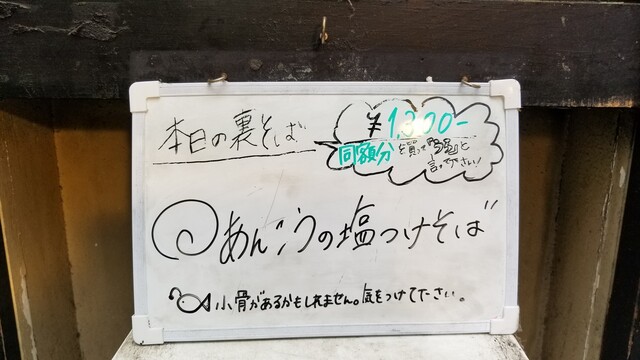 本日の裏そば
¥1,300-
同額分を買って『裏』と
言って下さい!
あんこうの塩つけそば
小骨があるかもしれません。気をつけて下さい。